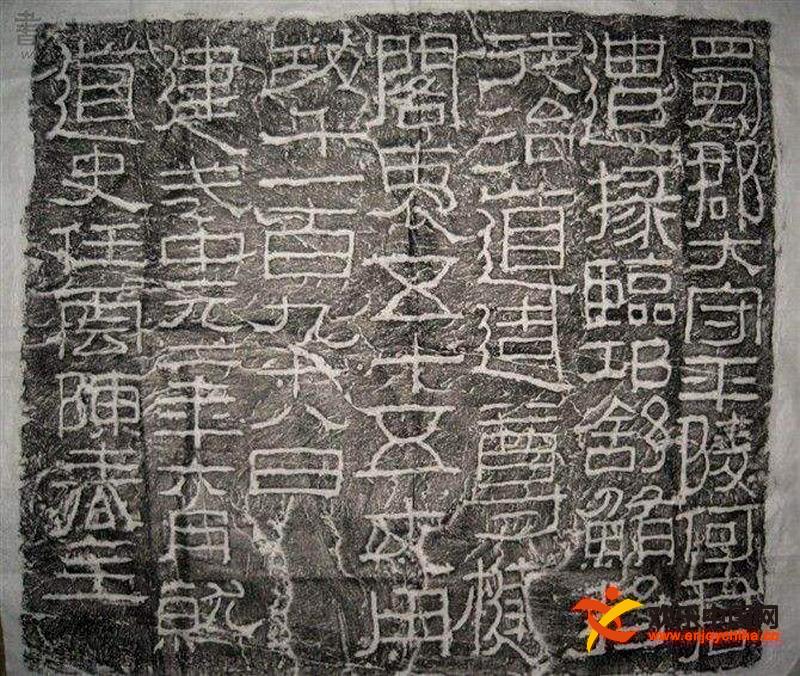 蜀郡大守平陵何君
遣掾臨邛舒鮪將
徒治道造尊楗
閣袤五十五丈用
功千一百九十八日
建武中元二年六月就
道史任雲陳春主
www.enjoychina.cn
書